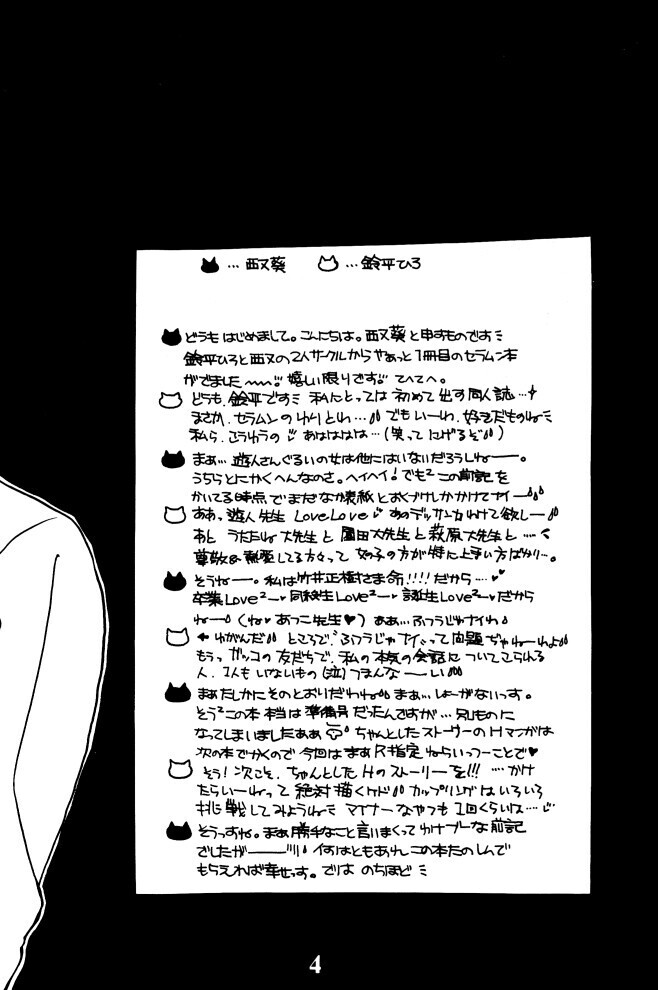 …西又葵 …鈴平ひろ
どうも はじめまして。こんにちは。西又葵と申すものです
鈴平ひろと西又の2人サークルからやぁっと1冊目のセラムン本
がでました〜〜!! 嬉しい限りです!! てへてへ。
どうも、鈴平です 私にとっては 初めて 出す 同人誌…
まさか、セラムンの とは… でも いーわ、好きだものね
私ら、こうゆうの あはははは…(笑って にげるぞ)
まぁ… 遊人さんぐるいの女は他にはいないだろうしねー。
うちらとにかくへんなのさ。ヘイヘイ! でも² この前記を
かいてる時点で まだ
ああっ 遊人先生 LoveLove あのデッサン力わけて欲しー
あと うたたね大先生と 園田大先生と 萩原大先生と ……
尊敬&熱愛してる方々って 女の子の方が特に上手い方ばかり…。
そうねー。私は竹井正樹さま命!!!! だから …
卒業Love²ー 同級生Love²ー 誕生Love²ー だから
ねー (ね あつこ先生♥) ああ… ふつうじゃナイわ
← ゆがんだ ところで、ふつうじゃナイって 問題 ぢゃねーわよ
もうっ ガッコの 友だちで、私の 本気の 会話に ついてこられる
人、1人も いないもの (泣) つまんなーーい
まぁたしかに そのとおりだわね まぁ… しょーがないっす。
そう² この本 本当は 準備号 だったんですが… 別ものに
なってしまいましたああ ちゃんとしたストーリーのHマンガは
次の本でかくので 今回は まあ R指定 ねらいっつーことで♥
そう! 次こそ、ちゃんとした Hの ストーリーを!!! … かけ
たらいーねって 絶対 描くケド カップリングは いろいろ
挑戦してみようね マイナーなやつも 1回くらいは …
そうっすね。まあ 勝手なこと 言いまくって ゆけブーな 前記
でしたが――― 何はともあれ この本たのしんで
もらえれば 幸せっす。では のちほど
4